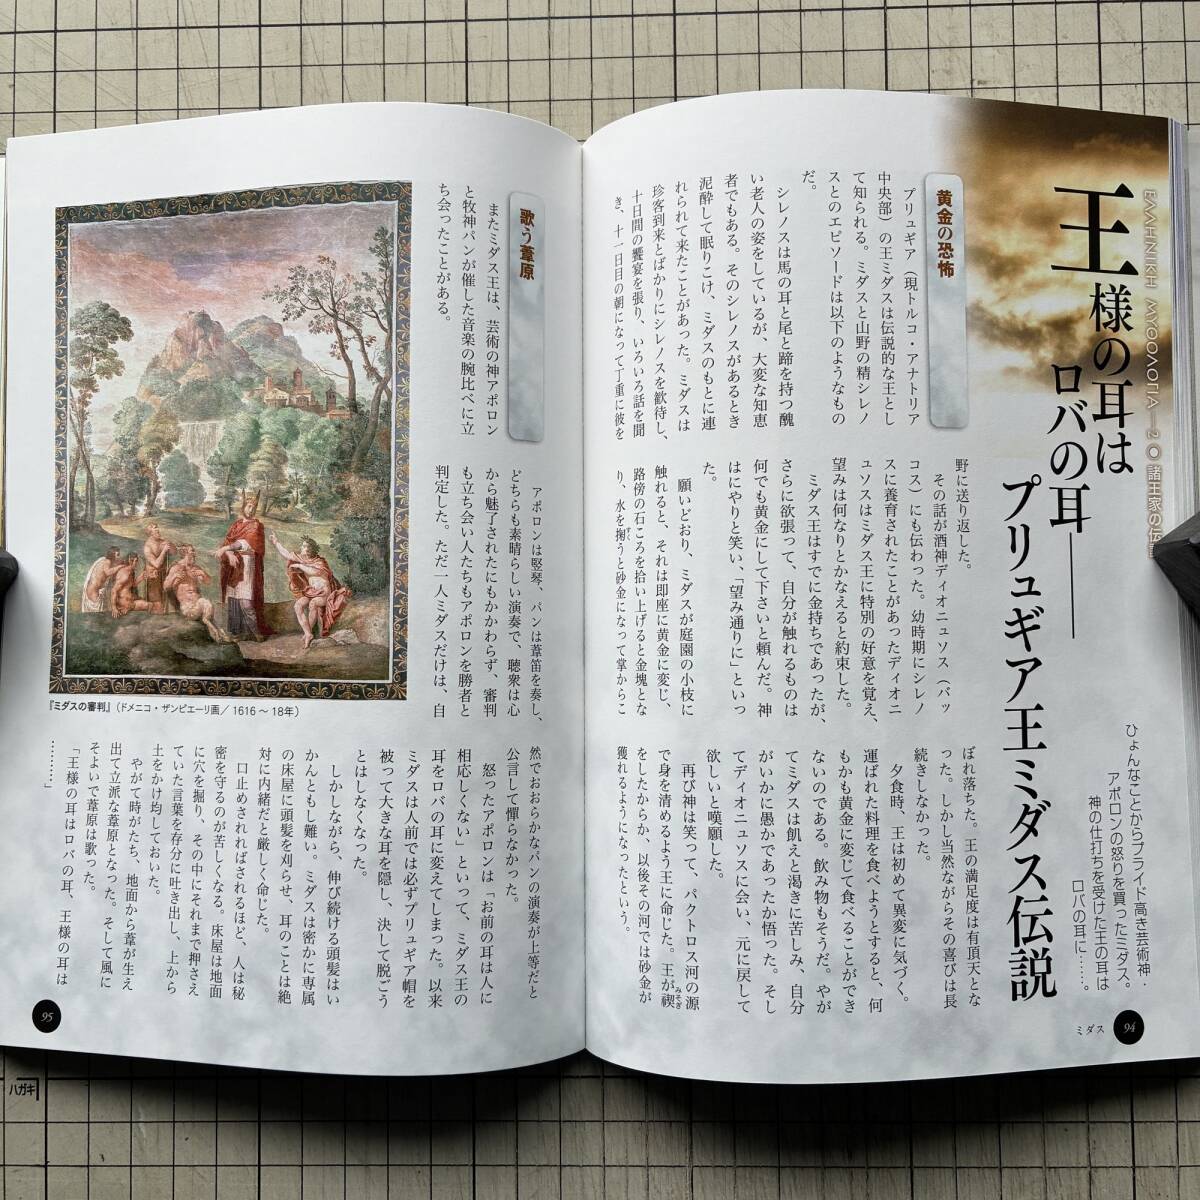 ΕΛΛΗΝΙΚΗ ΜΥΘΟΛΟΓΙΑ—2●諸王家の伝
王様の耳は
ロバの耳――
プリュギア王ミダス伝説
ひょんなことからプライド高き芸術神・
アポロンの怒りを買ったミダス。
神の仕打ちを受けた王の耳は
ロバの耳に……。
黄金の恐怖
プリュギア（現トルコ・アナトリア
中央部）の王ミダスは伝説的な王とし
て知られる。ミダスと山野の精シレノ
スとのエピソードは以下のようなもの
だ。
シレノスは馬の耳と尾と蹄を持つ醜
い老人の姿をしているが、大変な知恵
者でもある。そのシレノスがあるとき
泥酔して眠りこけ、ミダスのもとに連
れられて来たことがあった。ミダスは
珍客到来とばかりにシレノスを歓待し、
十日間の饗宴を張り、いろいろ話を聞
き、十一日目の朝になって丁重に彼を
野に送り返した。
その話が酒神ディオニュソス（バッ
コス）にも伝わった。幼時期にシレノ
スに養育されたことがあったディオニ
ュソスはミダス王に特別の好意を覚え、
望みは何なりとかなえると約束した。
ミダス王はすでに金持ちであったが、
さらに欲張って、自分が触れるものは
何でも黄金にして下さいと頼んだ。神
はにやりと笑い、「望み通りに」といっ
た。
願いどおり、ミダスが庭園の小枝に
触れると、それは即座に黄金に変じ、
路傍の石ころを拾い上げると金塊とな
り、水を掬うと砂金になって掌からこ
ぼれ落ちた。王の満足度は有頂天とな
った。しかし当然ながらその喜びは長
続きしなかった。
夕食時、王は初めて異変に気づく。
運ばれた料理を食べようとすると、何
もかも黄金に変じて食べることができ
ないのである。飲み物もそうだ。やが
てミダスは飢えと渇きに苦しみ、自分
がいかに愚かであったか悟った。そし
てディオニュソスに会い、元に戻して
欲しいと嘆願した。
再び神は笑って、パクトロス河の源
で身を清めるよう王に命じた。王が禊
みそぎ
をしたからか、以後その河では砂金が
獲れるようになったという。
ミダス 94
歌う葦原
またミダス王は、芸術の神アポロン
と牧神パンが催した音楽の腕比べに立
ち会ったことがある。
アポロンは竪琴、パンは葦笛を奏し、
どちらも素晴らしい演奏で、聴衆は心
から魅了されたにもかかわらず、審判
も立ち会い人たちもアポロンを勝者と
判定した。ただ一人ミダスだけは、自
然でおおらかなパンの演奏が上等だと
公言して憚らなかった。
怒ったアポロンは「お前の耳は人に
相応しくない」といって、ミダス王の
耳をロバの耳に変えてしまった。以来
ミダスは人前では必ずプリュギア帽を
被って大きな耳を隠し、決して脱ごう
とはしなくなった。
しかしながら、伸び続ける頭髪はい
かんともし難い。ミダスは密かに専属
の床屋に頭髪を刈らせ、耳のことは絶
対に内緒だと厳しく命じた。
口止めされればされるほど、人は秘
密を守るのが苦しくなる。床屋は地面
に穴を掘り、その中にそれまで押さえ
ていた言葉を存分に吐き出し、上から
土をかけ均しておいた。
やがて時がたち、地面から葦が生え
出て立派な葦原となった。そして風に
そよいで葦原は歌った。
「王様の耳はロバの耳、王様の耳は
………」
『ミダスの審判』（ドメニコ・ザンピエーリ画／1616～18年）
95
ハガキ